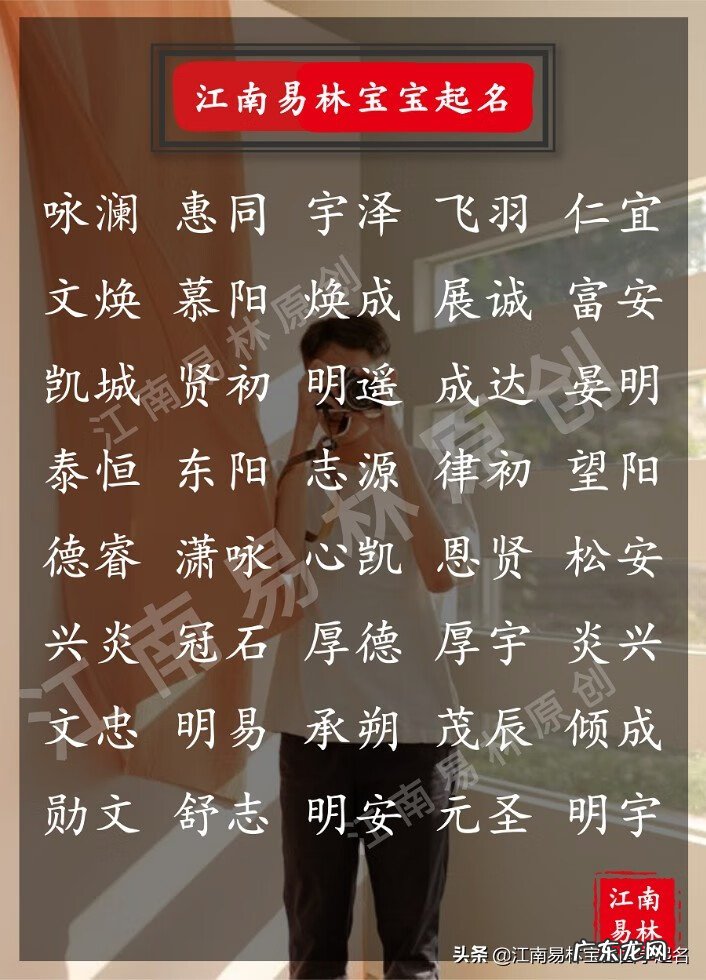 江南易林宝宝起名
咏澜 惠同 宇泽 飞羽 仁宜
文焕 慕阳 焕成 展诚 富安
凯城 贤初 明遥 成达 晏明
泰恒 东阳 志源 律初 望阳
德睿 潇咏 心凯 恩贤 松安
兴炎 冠石 厚德 厚宇 炎兴
文忠 明易 承朔 茂辰 倾成
勋文 舒志 明安 元圣 明宇
江南易林原创
江南易林原创
江南易林原创
江南
易林
头条 @江南易林宝宝起名
广东龙网